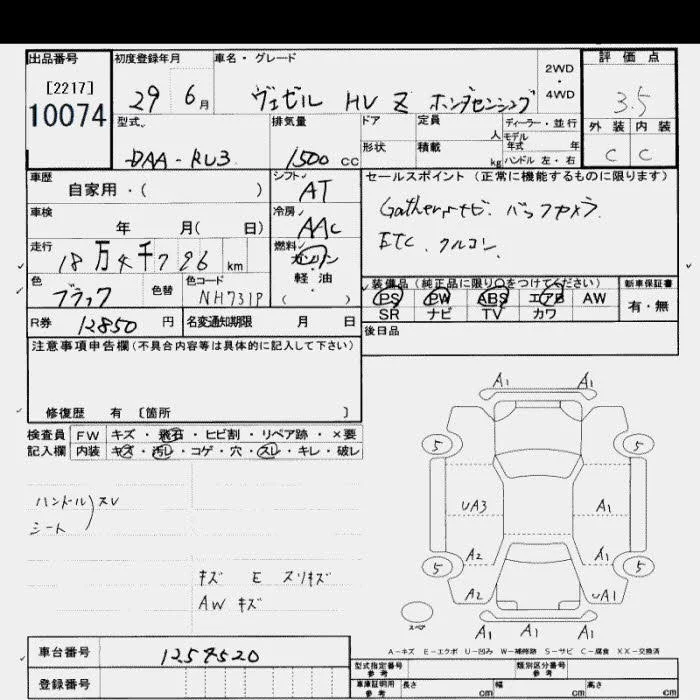 出品番号 初度登録年月 車名・グレード 2WD ・ 4WD 評価点
[2217]
10074 29 6月 ヴェゼル HV Z ホンダセンシング 3.5
型式 排気量 ドア 定員 人 ディーラー・並行 外装 内装
モデル年式 年
DAA-RU3 1500 cc 形状 積載 kg ハンドル 左・右 C C
車歴 自家用・( ) シフト AT セールスポイント (正常に機能するものに限ります)
車検 年 月( 日) 冷房 AAC Gathersナビ. バックカメラ.
走行 18万4千796 km 燃料 ガソリン ETC. クルコン.
軽油・
色 ブラック 色替 色コード NH731P ( ) 装備品 (純正品に限り○をつけてください) 新車保証書
PS PW ABS エアB AW 有・無
SR ナビ TV カワ
R券 12850 円 名変通知期限 月 日 後日品
注意事項申告欄 (不具合内容等は具体的に記入して下さい)
修復歴 有 〔箇所 〕
検査員 FW キズ・飛石・ヒビ割・リペア跡・×要
記入欄 内装 キズ・汚レ・コゲ・穴・スレ・キレ・破レ
A1 A1
5 5
ハンドル スレ
シート
UA3 A1
A2 A1
5 5
キズ E スリキズ A2 UA1
AW キズ
スペア A1 A1 A1
A-キズ E-エクボ U-凹み W-補修跡 S-サビ C-腐食 XX-交換済
車台番号 1257520
型式指定番号 参考 類別区分番号 参考
登録番号 車庫証明用 参考 長さ cm 幅 cm 高さ cm